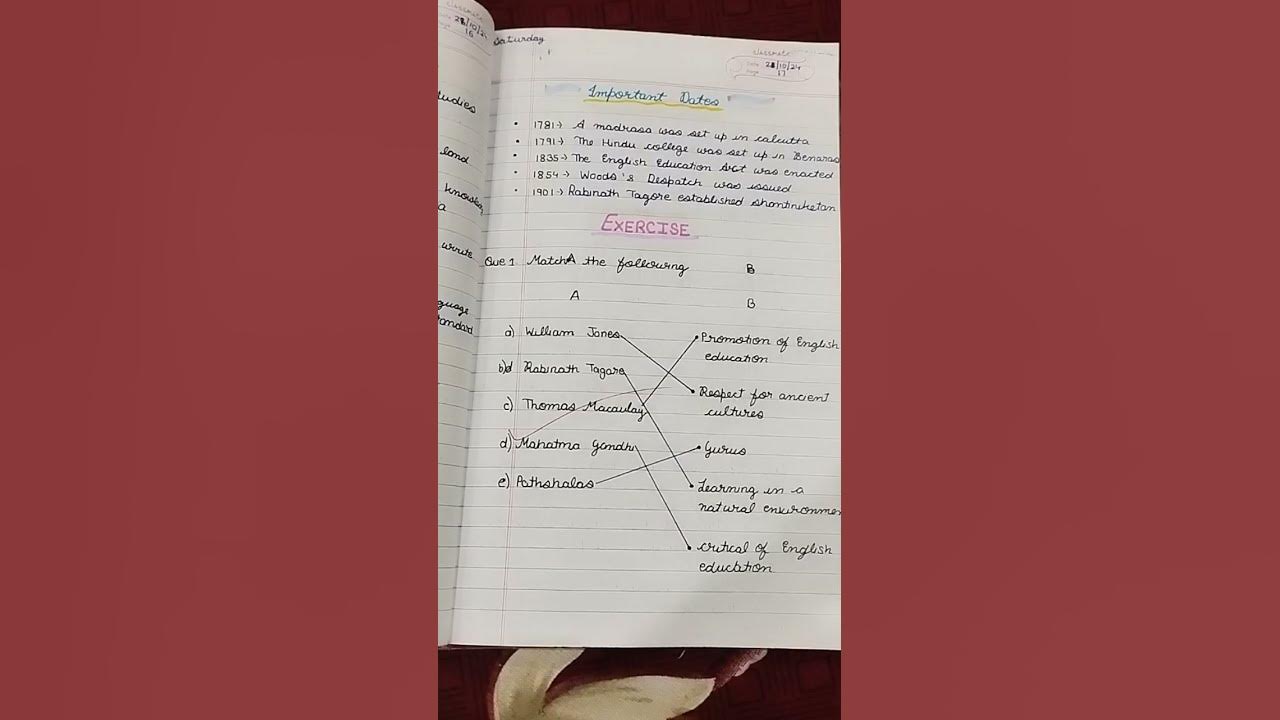 classmate
28/10/24
16
tudies
land
knowledge
a
write
guage
tandard
Saturday
classmate
Date 28/10/24
Page 17
Important Dates
• 1781→ A madrasa was set up in calcutta
• 1791→ The Hindu college was set up in Benaras
• 1835→ The English Education Act was enacted
• 1854→ Woods's Despatch was issued
• 1901→ Rabinath Tagore established Shantiniketan
EXERCISE
Que 1 Match the following B
A B
a) William Jones Promotion of English
education
b) Rabinath Tagore Respect for ancient
cultures
c) Thomas Macaulay
d) Mahatma Gandhi Gurus
e) Pathshalas Learning in a
natural environmen
critical of English
education